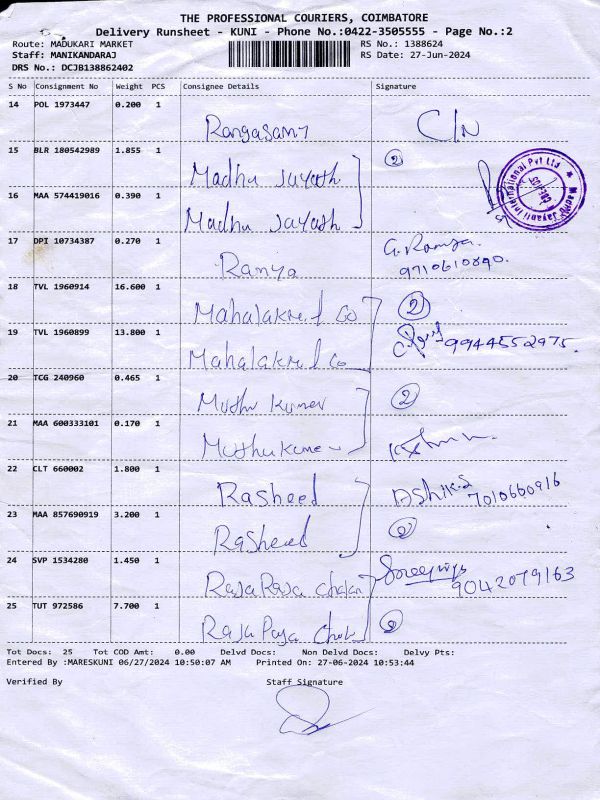 THE PROFESSIONAL COURIERS, COIMBATORE
Delivery Runsheet - KUNI - Phone No.:0422-3505555 - Page No.:2
Route: MADUKARI MARKET RS No.: 1388624
Staff: MANIKANDARAJ RS Date: 27-Jun-2024
DRS No.: DCJB138862402
S No Consignment No Weight PCS Consignee Details Signature
14 POL 1973447 0.200 1
Rangasamy C/N
15 BLR 180542989 1.855 1 2
Madhu Jayath
16 MAA 574419016 0.390 1
Madhu Jayath
17 DPI 10734387 0.270 1 G. Ramya.
Ramya 9710610890.
18 TVL 1960914 16.600 1
Mahalakm & Co 2
19 TVL 1960899 13.800 1 9944552975.
Mahalakm & Co
20 TCG 240960 0.465 1
Muthu Kumar 2
21 MAA 600333101 0.170 1
Muthukumar
22 CLT 660002 1.800 1
Rasheed Ashik.S 7010660916
23 MAA 857690919 3.200 1
Rasheed 2
24 SVP 1534280 1.450 1
Raja Raja 9042079163
25 TUT 972586 7.700 1
Raja Raja 2
Tot Docs: 25 Tot COD Amt: 0.00 Delvd Docs: Non Delvd Docs: Delvy Pts:
Entered By :MARESKUNI 06/27/2024 10:50:07 AM Printed On: 27-06-2024 10:53:44
Verified By Staff Signature